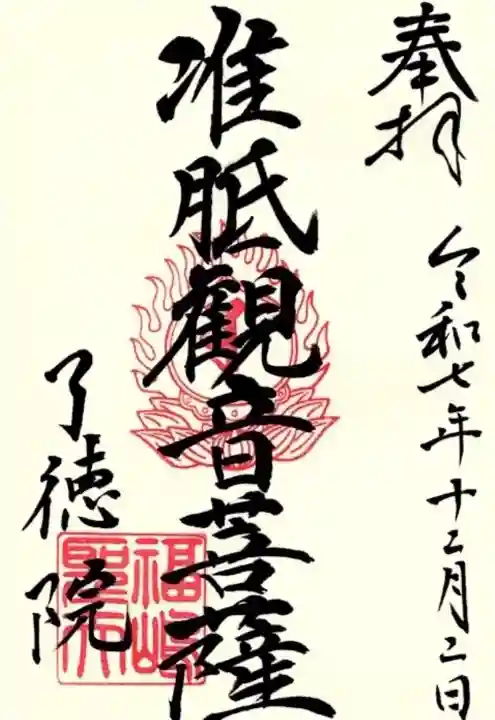 奉拝
令和七年十二月二日
准胝觀音菩薩
了徳院
福嶋
聖天